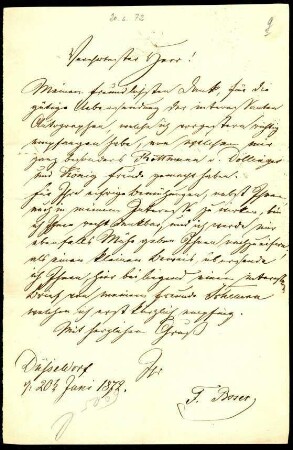 20.6.72
Verehrtester Herr!
Meinen freundlichsten Dank, für die
gütige Uebersendung der
Autographen, welche ich vorgestern richtig
empfangen habe, von welchen mir
ganz besonders Rottmann u. Dollinger
und König Freude gemacht haben.
Für Ihre eifrige Bemühungen, nebst Ihnen,
noch in meinem Interesse zu wirken, bin
ich Ihnen recht dankbar, und ich werde mir
ebenfalls Mühe geben Ihnen
als einen kleinen Beweis, übersende
ich Ihnen hier beiliegend einen
Brief von meinem Freunde
welchen ich erst kürzlich empfing.
Mit herzlichem Gruß
Ihr
Düsseldorf
d. 20t Juni 1872.
F. Boser